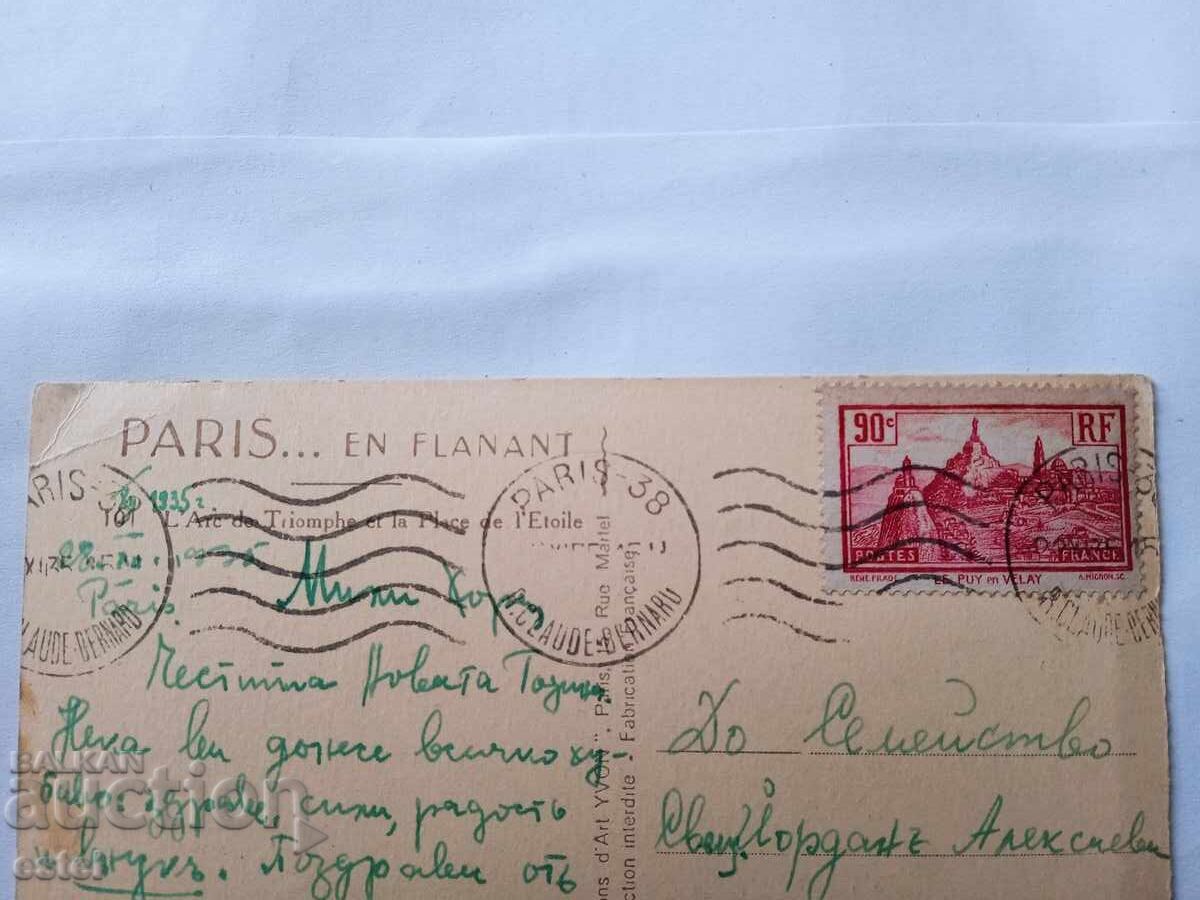 PARIS... EN FLANANT
101 L'Arc de Triomphe et la Place de l'Etoile
1935 г.
1935
Paris.
Мили Хора
Честита Новата Година.
Нека ви донесе всичко ху-
баво, здраве, сили, радость
и внукъ. Поздрави отъ
PARIS-38
R.CLAUDE-BERNARD
PARIS-38
R.CLAUDE-BERNARD
PARIS
R.CLAUDE-BERN
90c RF
POSTES FRANCE
LE PUY en VELAY
ons d'Art YVON", Paris, Rue Martel
ction interdite - Fabrication Française
До Семейство
Свещ. Йорданъ Алексиеви
BALKAN
auction
ester